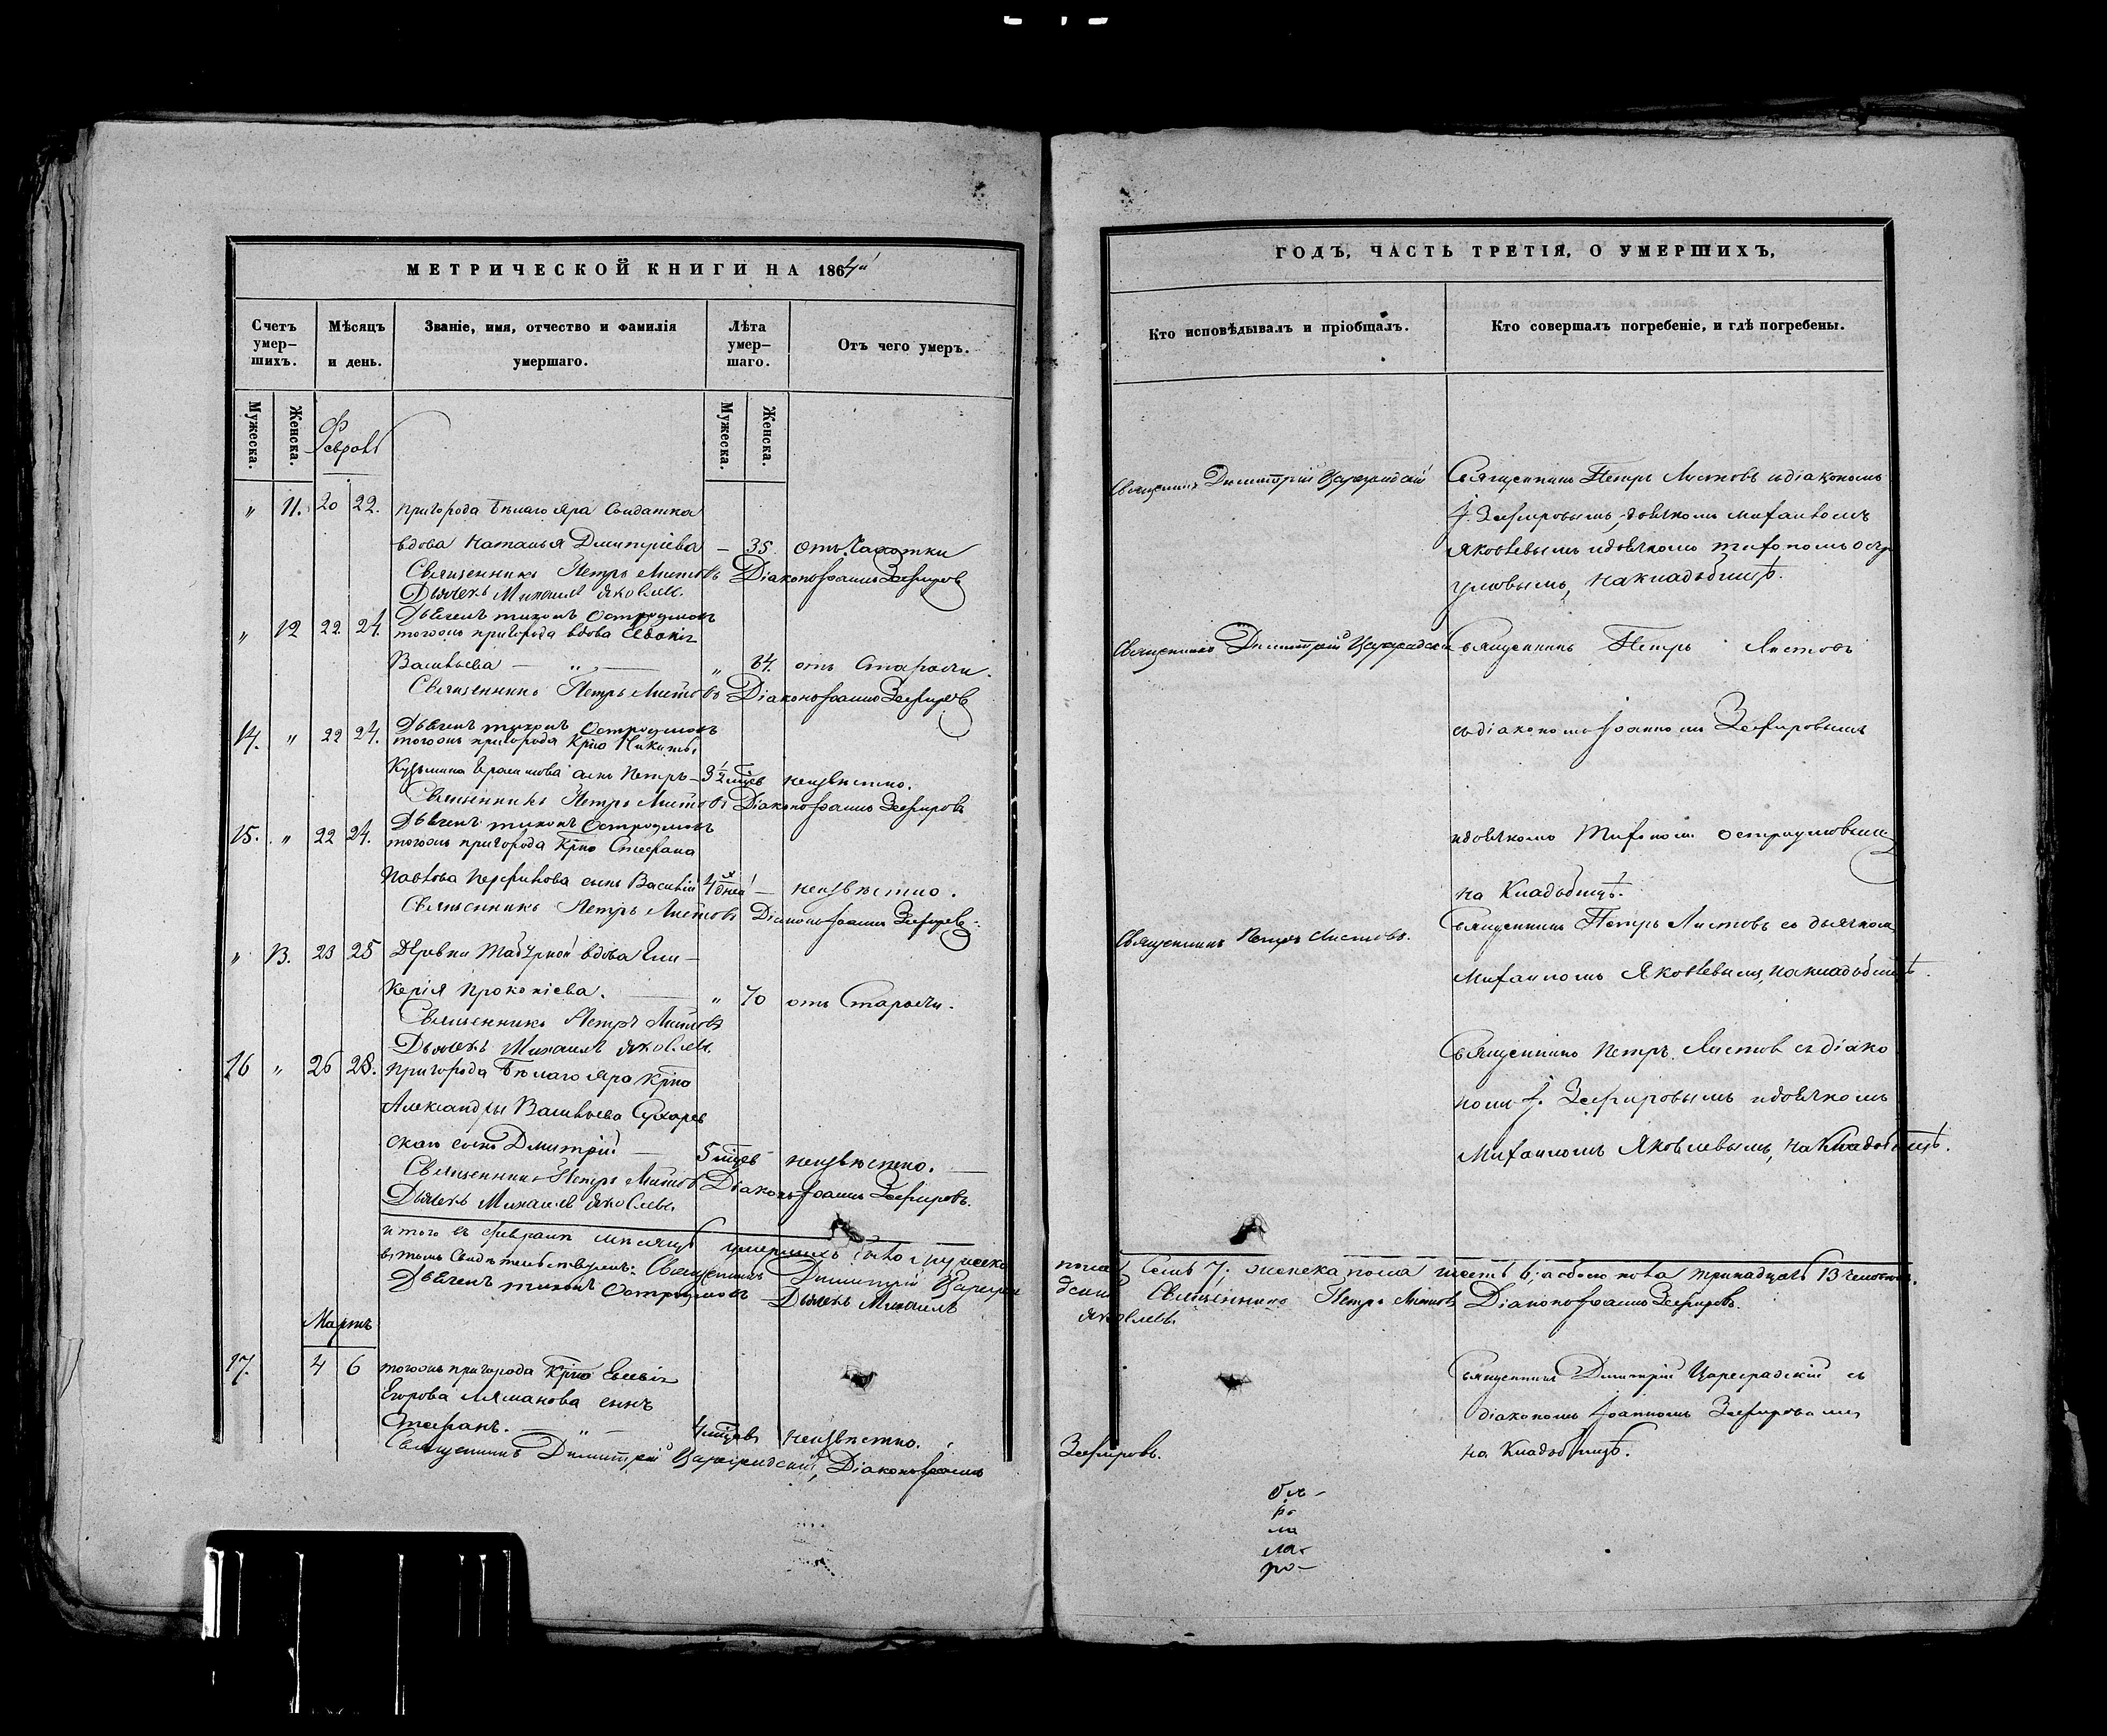 МЕТРИЧЕСКОЙ КНИГИ НА 1864й
Счетъ умер-
шихъ.
Мѣсяцъ
и день.
Званіе, имя, отчество и фамилія
умершаго.
Лѣта
умер-
шаго.
Отъ чего умеръ.
Мужеска.
Женска.
Мужеска.
Женска.
" 11. 20 22. пригорода Бѣлаго Яра Солдатка
вдова Наталья Димитріева — 35. отъ Чахотки
Священникъ Петръ Листовъ Діаконъ Іоаннъ Зефировъ
Дьячекъ Михаилъ Яковлевъ.
Дьячекъ Тихонъ Остроумовъ
" 12 22 24. тогожъ пригорода вдова
Васильева — " — " 84. отъ Старости.
Священникъ Петръ Листовъ Діаконъ Іоаннъ Зефировъ
Дьячекъ Тихонъ Остроумовъ
14. " 22 24. тогожъ пригорода Крно Никиты
Кузьмина сынъ Петръ — 3½ мцев неизвѣстно.
Священникъ Петръ Листовъ Діаконъ Іоаннъ Зефировъ
Дьячекъ Тихонъ Остроумовъ
15. " 22 24. тогожъ пригорода Крно Стефана
Павлова сынъ Василій 4 дней — неизвѣстно.
Священникъ Петръ Листовъ Діаконъ Іоаннъ Зефировъ
" 13. 23 25 Деревни вдова Гли-
керія Прокопіева. — " 70 отъ Старости.
Священникъ Петръ Листовъ
Дьячекъ Михаилъ Яковлевъ.
16 " 26 28. пригорода Бѣлаго Яра Крно
Александры Васильева
сынъ Димитрій — 5 мцев неизвѣстно. —
Священникъ Петръ Листовъ Діаконъ Іоаннъ Зефировъ.
Дьячекъ Михаилъ Яковлевъ.
итого въ февралѣ мѣсяцѣ умершихъ было мужеска
въ томъ Свидѣтельствуемъ: Священникъ Димитрій Цареград
Дьячекъ Тихонъ Остроумовъ Дьячекъ Михаилъ
Мартъ
17. 4 6 тогожъ пригорода Крно
Егорова сынъ
Стефанъ. — " — 4 мцев неизвѣстно.
Священникъ Димитрій Цареградскій, Діаконъ Іоаннъ
ГОДЪ, ЧАСТЬ ТРЕТІЯ, О УМЕРШИХЪ,
Кто исповѣдывалъ и пріобщалъ.
Кто совершалъ погребеніе, и гдѣ погребены.
Священникъ Димитрій Цареградскій
Священникъ Петръ Листовъ съ діакономъ
І. Зефировымъ, дьячкомъ Михаиломъ
Яковлевымъ и дьячкомъ Тихономъ Остро
умовымъ, на кладбищѣ.
Священникъ Димитрій Цареградскій
Священникъ Петръ Листовъ
съ діакономъ Іоанномъ Зефировымъ
и дьячкомъ Тихономъ Остроумовымъ
на Кладбищѣ.
Священникъ Петръ Листовъ.
Священникъ Петръ Листовъ съ дьячкомъ
Михаиломъ Яковлевымъ, на кладбищѣ.
Священникъ Петръ Листовъ съ діако
номъ І. Зефировымъ и дьячкомъ
Михаиломъ Яковлевымъ, на Кладбищѣ.
пола Семь 7, женска пола шесть 6, а обоего пола тринадцать 13 человѣкъ.
скій Священникъ Петръ Листовъ Діаконъ Іоаннъ Зефировъ.
Яковлевъ
Священникъ Димитрій Цареградскій съ
діакономъ Іоанномъ Зефировымъ
Зефировъ.
на Кладбищѣ.
ла
ро-